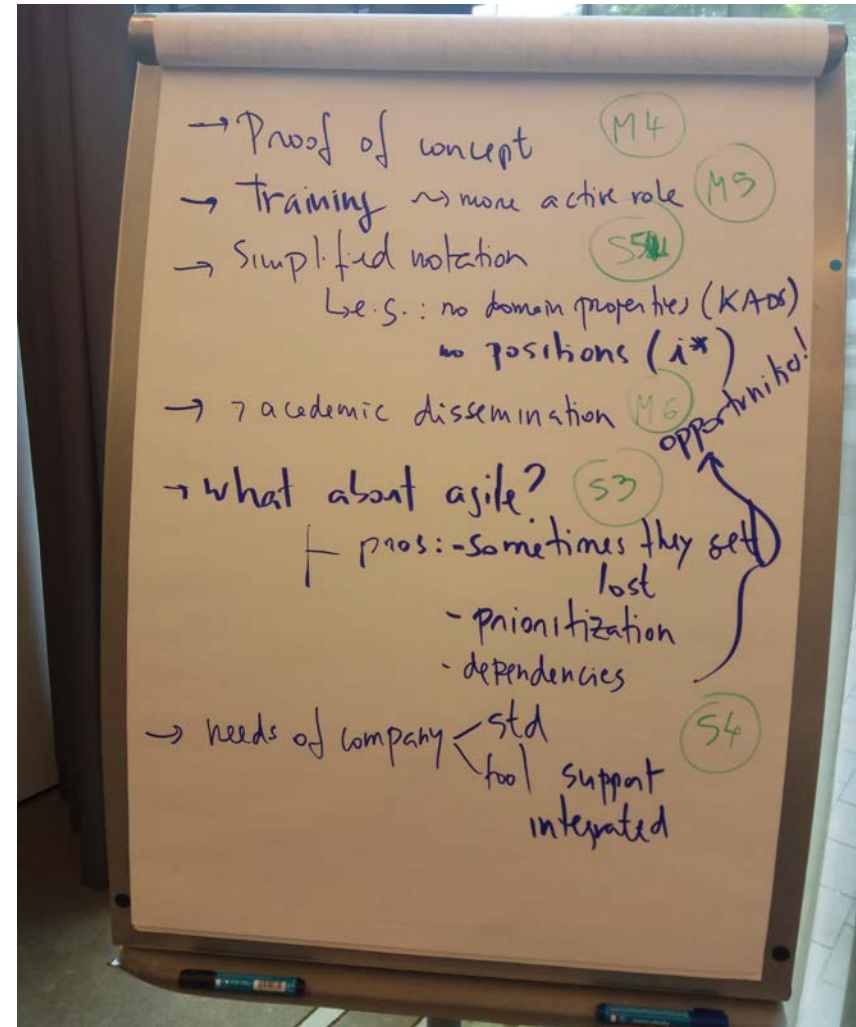 → Proof of concept M4
→ Training ⤳ more active role M5
→ Simplified notation S5
↳ e.g.: no domain properties (KAOS)
no positions (i*)
→ academic dissemination M6
opportunities!
→ what about agile? S3
pros: - sometimes they get
lost
- prioritization
- dependencies
→ needs of company std S4
tool support
integrated